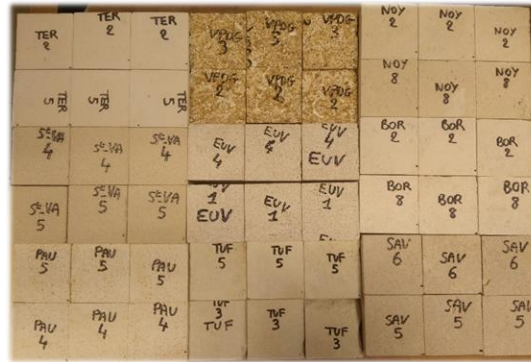 TER
2
TER
2
TER
2
VPDG
3
VPDG
3
3
NOY
2
NOY
2
NOY
2
TER
5
TER
5
TER
5
VPDG
2
VPDG
2
VPDG
2
NOY
8
NOY
8
NOY
8
SE-VA
4
SE-VA
4
SE-VA
4
EUV
4
EUV
4
EUV
4
EUV
BOR
2
BOR
2
BOR
2
SE-VA
5
SE-VA
5
SE-VA
5
EUV
1
EUV
EUV
1
EUV
1
BOR
8
BOR
8
BOR
8
PAU
5
PAU
5
PAU
5
TUF
5
TUF
5
TUF
5
SAV
6
SAV
6
SAV
6
PAU
4
PAU
4
PAU
4
TUF
3
TUF
TUF
3
TUF
3
SAV
5
SAV
5
SAV
5